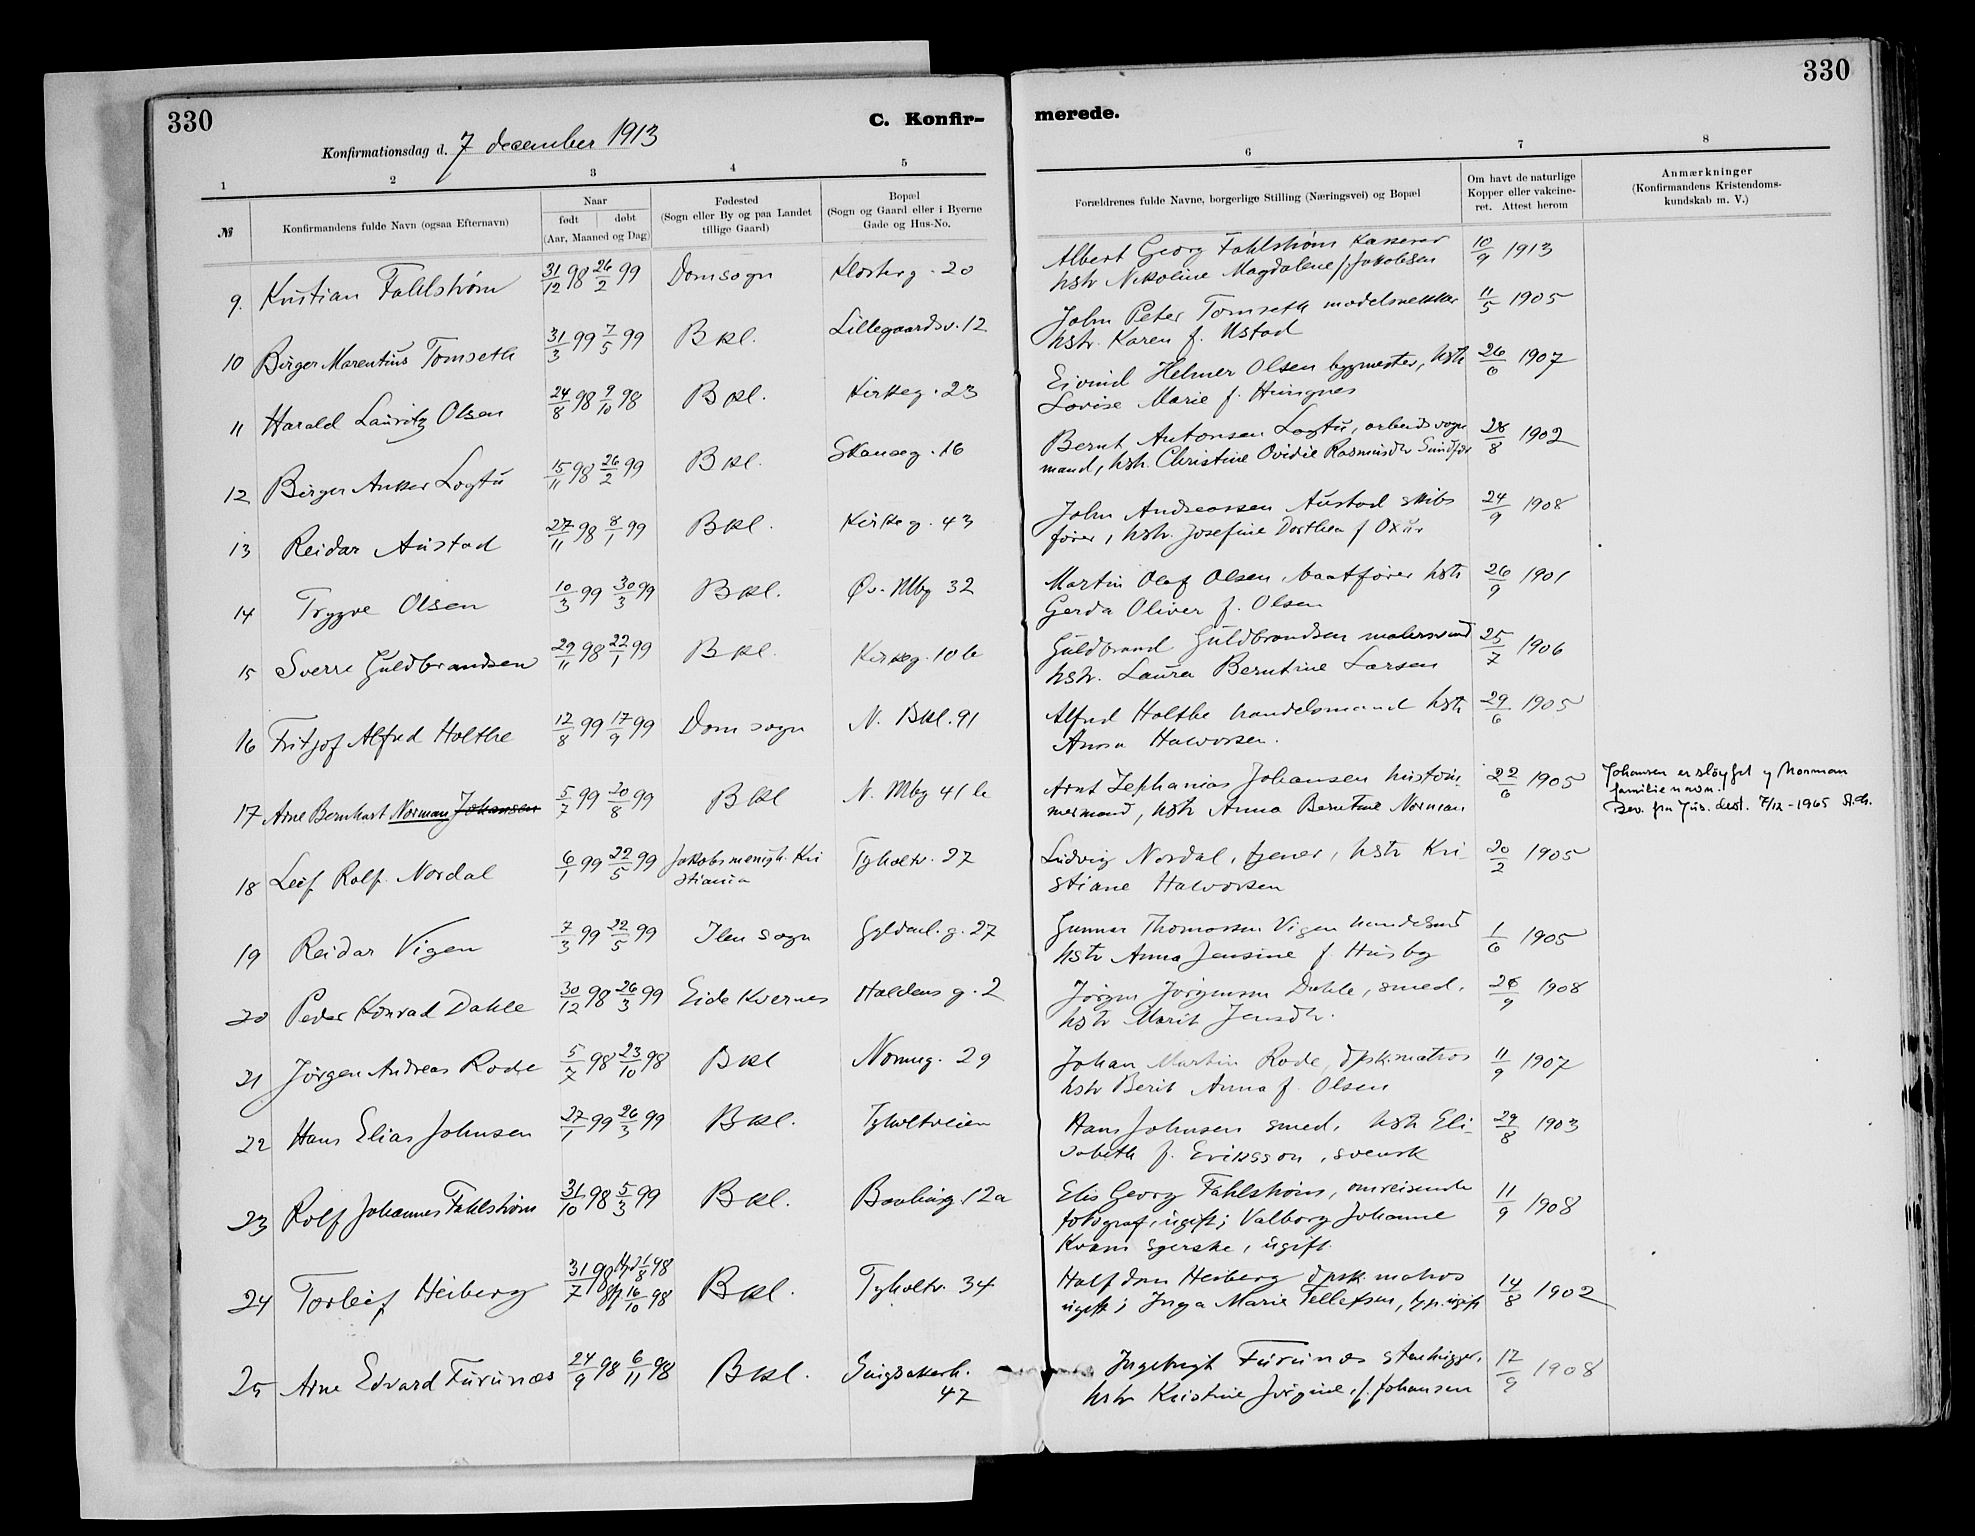 330
330
C. Konfir-
merede.
Konfirmationsdag d. 7 december 1913
1 2 3 4 5 6 7 8
№
Konfirmandens fulde Navn (ogsaa Efternavn)
Naar
født døbt
(Aar, Maaned og Dag)
Fødested
(Sogn eller By og paa Landet
tillige Gaard)
Bopæl
(Sogn og Gaard eller i Byerne
Gade og Hus-No.
Forældrenes fulde Navne, borgerlige Stilling (Næringsvei) og Bopæl
Om havt de naturlige
Kopper eller vakcine-
ret. Attest herom
Anmærkninger
(Konfirmandens Kristendoms-
kundskab m. V.)
9. Kristian Fahlstrøm 31/12 98 26/2 99 Domsogn Klosterg. 20 Albert Georg Fahlstrøm kasserer 10/9 1913
hstr Nikoline Magdalene f. Jakobsen
10 Birger Marentius Tomseth 31/3 99 7/5 99 Bkl. Lillegaardsv. 12 John Peter Tomseth modelsnekker 11/5 1905
hstr. Karen f. Ustad
11 Harald Lauritz Olsen 24/8 98 9/10 98 Bkl. Kirkeg. 23 Eivind Helmer Olsen bygmester, hstr 26/6 1907
Lovise Marie f. Hungnes
12 Birger Anker Logtu 15/11 98 26/2 99 Bkl. Skanseg. 16 Bernt Antonsen Logtu, arbeidsvogn 28/8 1902
mand, hstr. Christine Ovidie Rasmusdtr
13 Reidar Austad 27/11 98 8/1 99 Bkl. Kirkeg. 43 John Andreassen Austad skibs 24/9 1908
fører, hstr. Josefine Dorthea f Oxår
14 Trygve Olsen 10/3 99 30/3 99 Bkl. Øv. Mbg 32 Martin Olaf Olsen, baatfører hstr 26/9 1901
Gerda Oliver f. Olsen
15 Sverre Guldbrandsen 29/11 98 22/1 99 Bkl. Kirkeg. 10 b Guldbrand Guldbrandsen malersvend 25/7 1906
hstr. Laura Berntine Larsen
16 Fritjof Alfred Holthe 12/8 99 17/9 99 Domsogn N. Bkl. 91 Alfred Holthe handelsmand hstr 29/6 1905
Anna Halvorsen.
17 Arne Bernhart Norman Johansen 5/7 99 20/8 99 Bkl N. Mbg 41 b Arnt Zephanias Johansen hustøm- 22/6 1905 Johansen er sløyfet og Norman
mermand, hstr Anna Berntine Norman familienavn.
Bev. fra Jus. dept. 7/12-1965
18 Leif Rolf Nordal 6/1 99 22/5 99 Jakobsmenigh. Kri Tyholtv. 27 Ludvig Nordal, tjener, hstr Kri- 20/2 1905
stiania stiane Halvorsen
19 Reidar Vigen 7/3 99 22/5 99 Ilen sogn Gyldenl. g. 27 Gunnar Thomassen Vigen handelsmd 1/6 1905
hstr Anna Jensine f. Husby
20 Peder Konrad Dahle 30/12 98 26/3 99 Eide Kvernes Haldens g. 2 Jørgen Jørgensen Dahle, smed. 26/9 1908
hstr Marit Jensdtr.
21 Jørgen Andreas Rode 5/7 98 23/10 98 Bkl Nonneg. 29 Johan Martin Rode, dpsk.matros 11/9 1907
hstr Berit Anna f. Olsen
22 Hans Elias Johnsen 27/1 99 26/3 99 Bkl. Tyholtveien Hans Johnsen smed, hstr Eli- 29/8 1903
sabeth f. Eriksson, svensk
23 Rolf Johannes Fahlstrøm 31/10 98 5/3 99 Bkl. 12a Elis Georg Fahlstrøm, omreisende 11/9 1908
fotograf, ugift; Valborg Johanne
Kvam syerske, ugift
24 Torleif Heiberg 31/7 98 Hjd 1/8 98 16/10 98 Bkl. Tyholtv. 34 Halfdan Heiberg dpsk. matros 14/8 1902
ugift; Inga Marie Tellefsen, ugift
25 Arne Edvard Furunæs 24/9 98 6/11 98 Bkl. Singsakerb. Ingebrigt Furunæs stenhugger, 17/9 1908
47 hstr Kristine Jørgine, f. Johansen